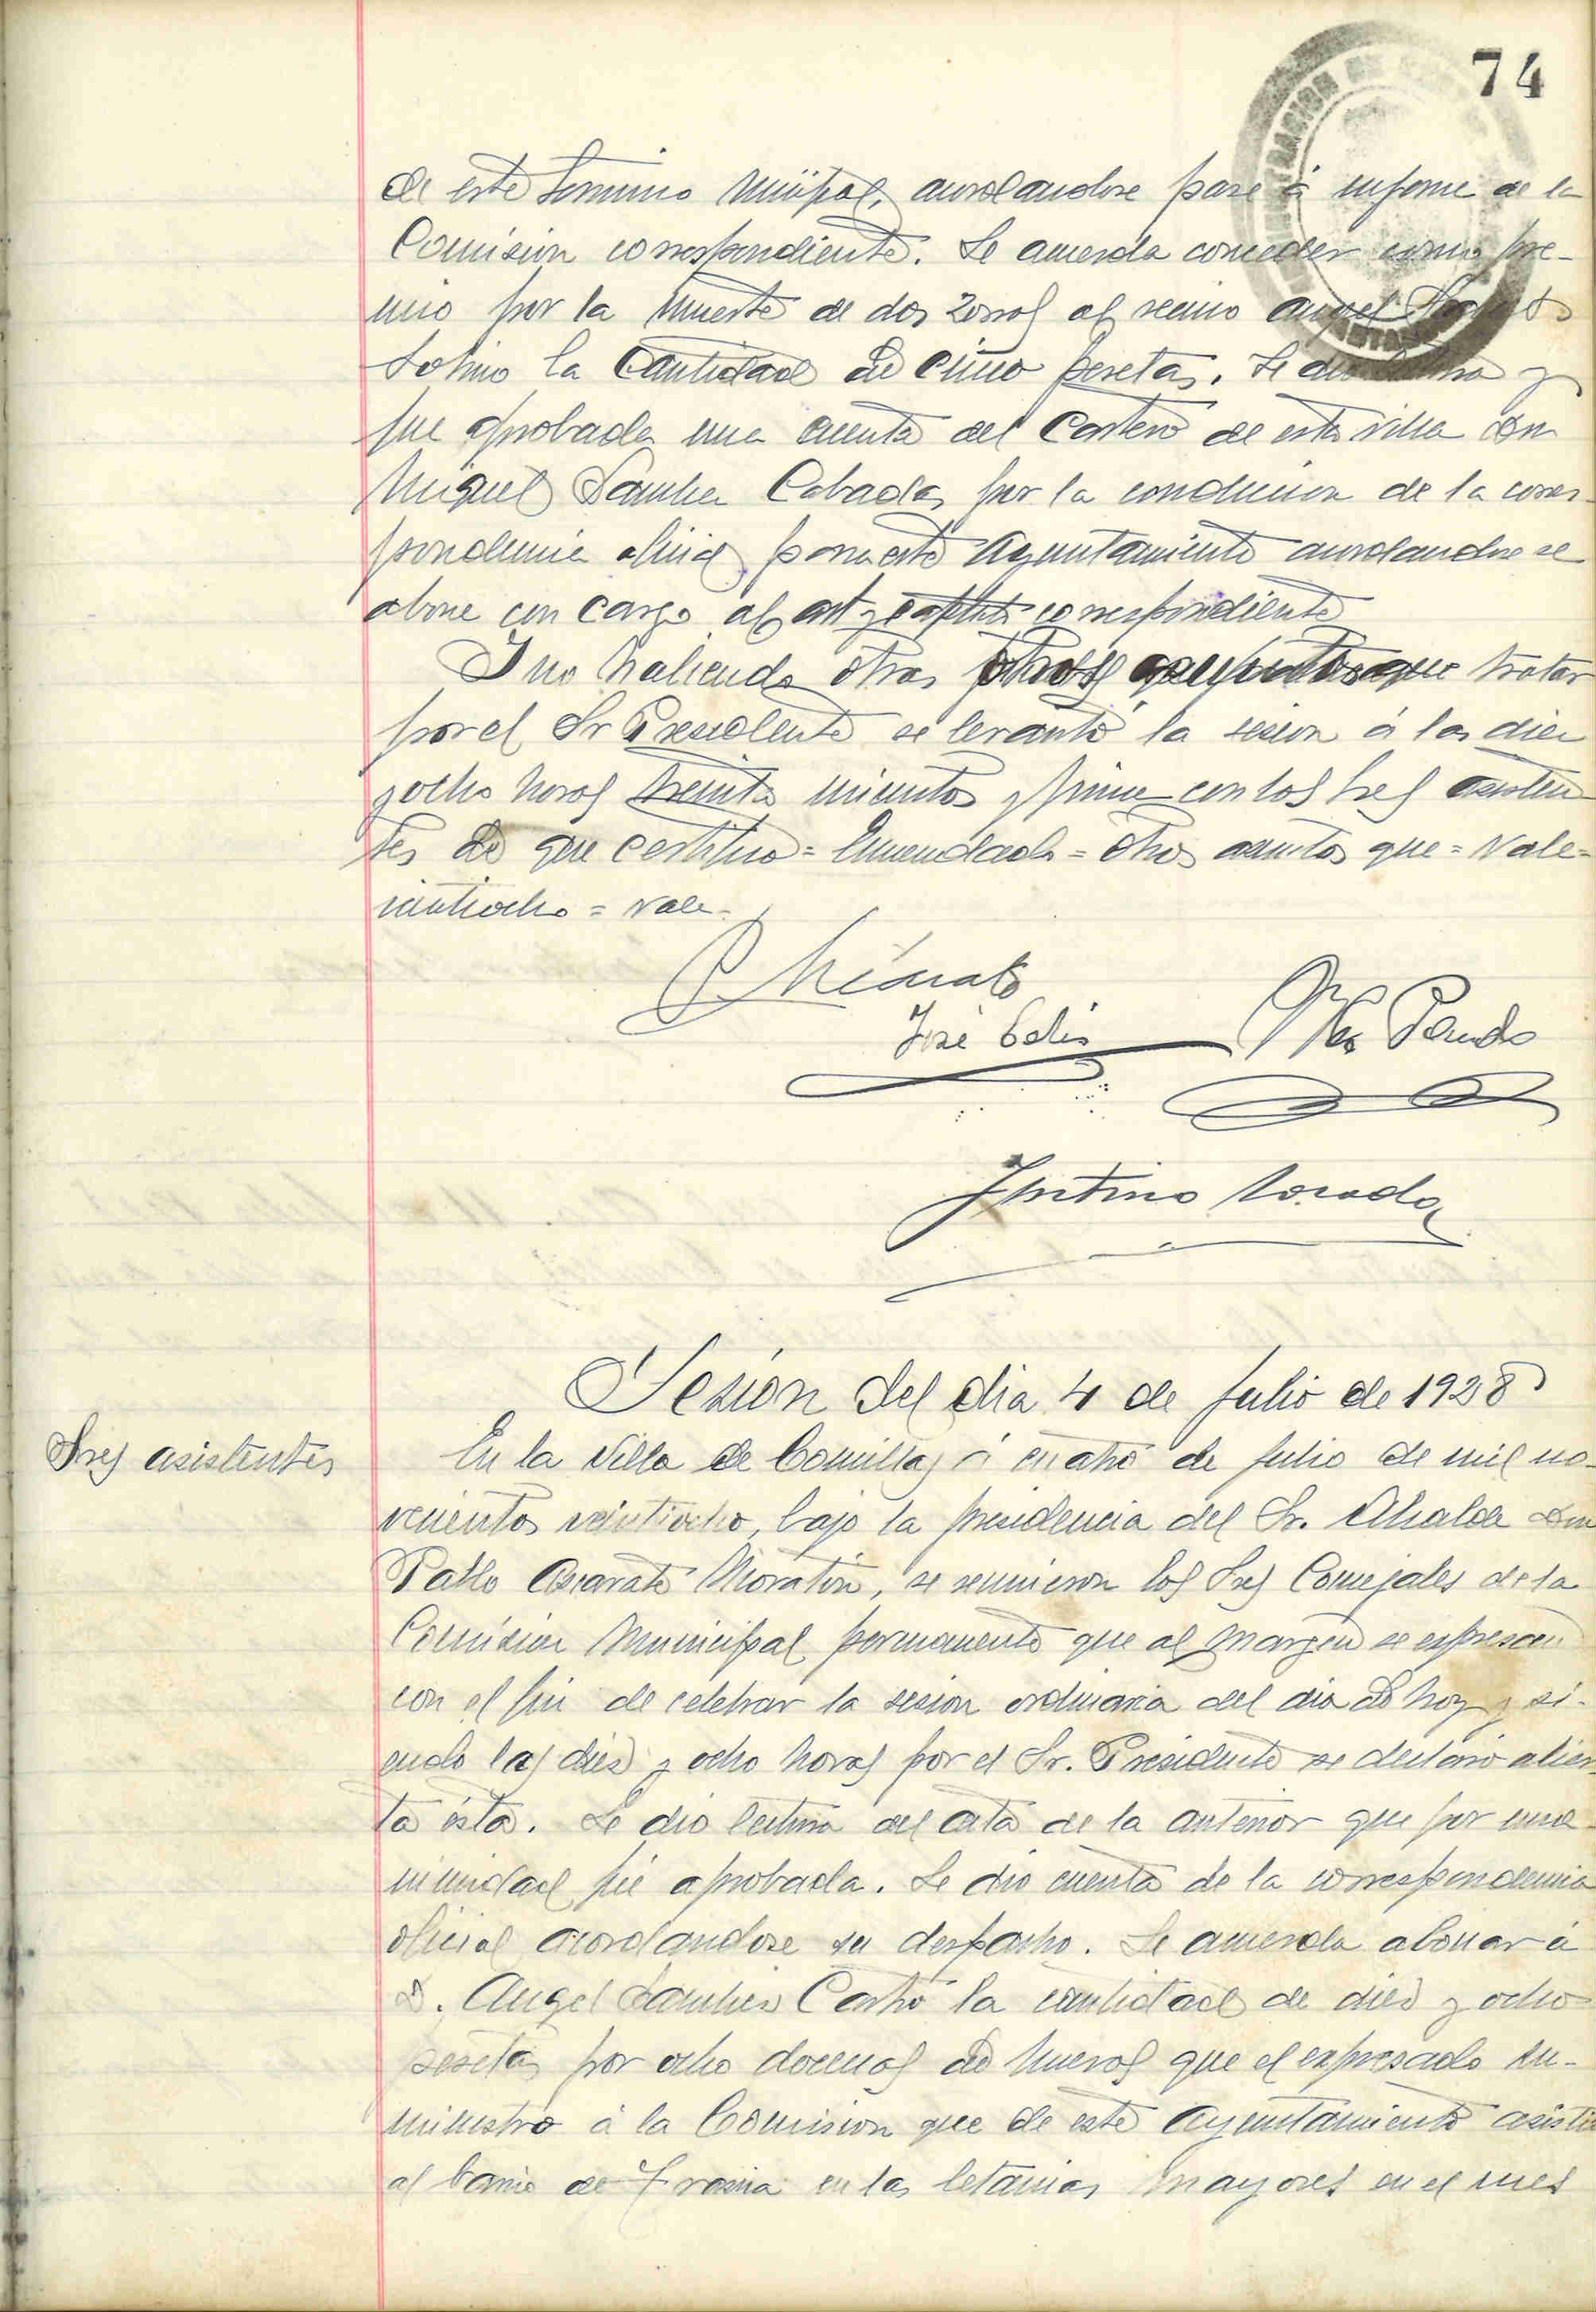 74
de este termino Muñpal, acordandose pase á informe de la
Comision correspondiente. Se acuerda conceder como pre-
mio por la muerte de dos zorros al vecino Angel
Sobrino la cantidad de cinco pesetas. Se dio lectura y
fue aprobada una cuenta del Cartero de esta villa Don
Miguel Sanchez Cobado, por la conducion de la corres-
pondencia oficial para este Ayuntamiento acordandose se
abone con cargo al art y capitulo correspondiente
Y no habiendo otros otros asuntos que tratar
por el Sr Presidente se levantó la sesion á las diez
y ocho horas treinta minutos y firma con los Sres asisten-
tes de que certifico = Enmendado = otros asuntos que = Vale =
vintiocho = vale -
P Azcarate
José Celis
Pardo
Justino Posada
Sesion del dia 4 de Julio de 1928
Sres asistentes
En la Villa de Comillas á cuatro de Julio de mil no-
vecientos veintiocho, bajo la presidencia del Sr. Alcalde Don
Pablo Azcarate Moratin, se reunieron los Sres Concejales de la
Comision Municipal permanente que al margen se expresan
con el fin de celebrar la sesion ordinaria del dia de hoy y si-
endo las diez y ocho horas por el Sr. Presidente se declaró abier-
ta ésta. Se dio lectura del acta de la anterior que por una-
nimidad fué aprobada. Se dio cuenta de la correspondencia
oficial acordandose su despacho. Se acuerda abonar á
D. Angel Sanchez Castro la cantidad de diez y ocho
pesetas por ocho docenas de huevos que el expresado su-
ministro á la Comision que de este Ayuntamiento asistio
al barrio de Trasvia en las letanias mayores en el mes